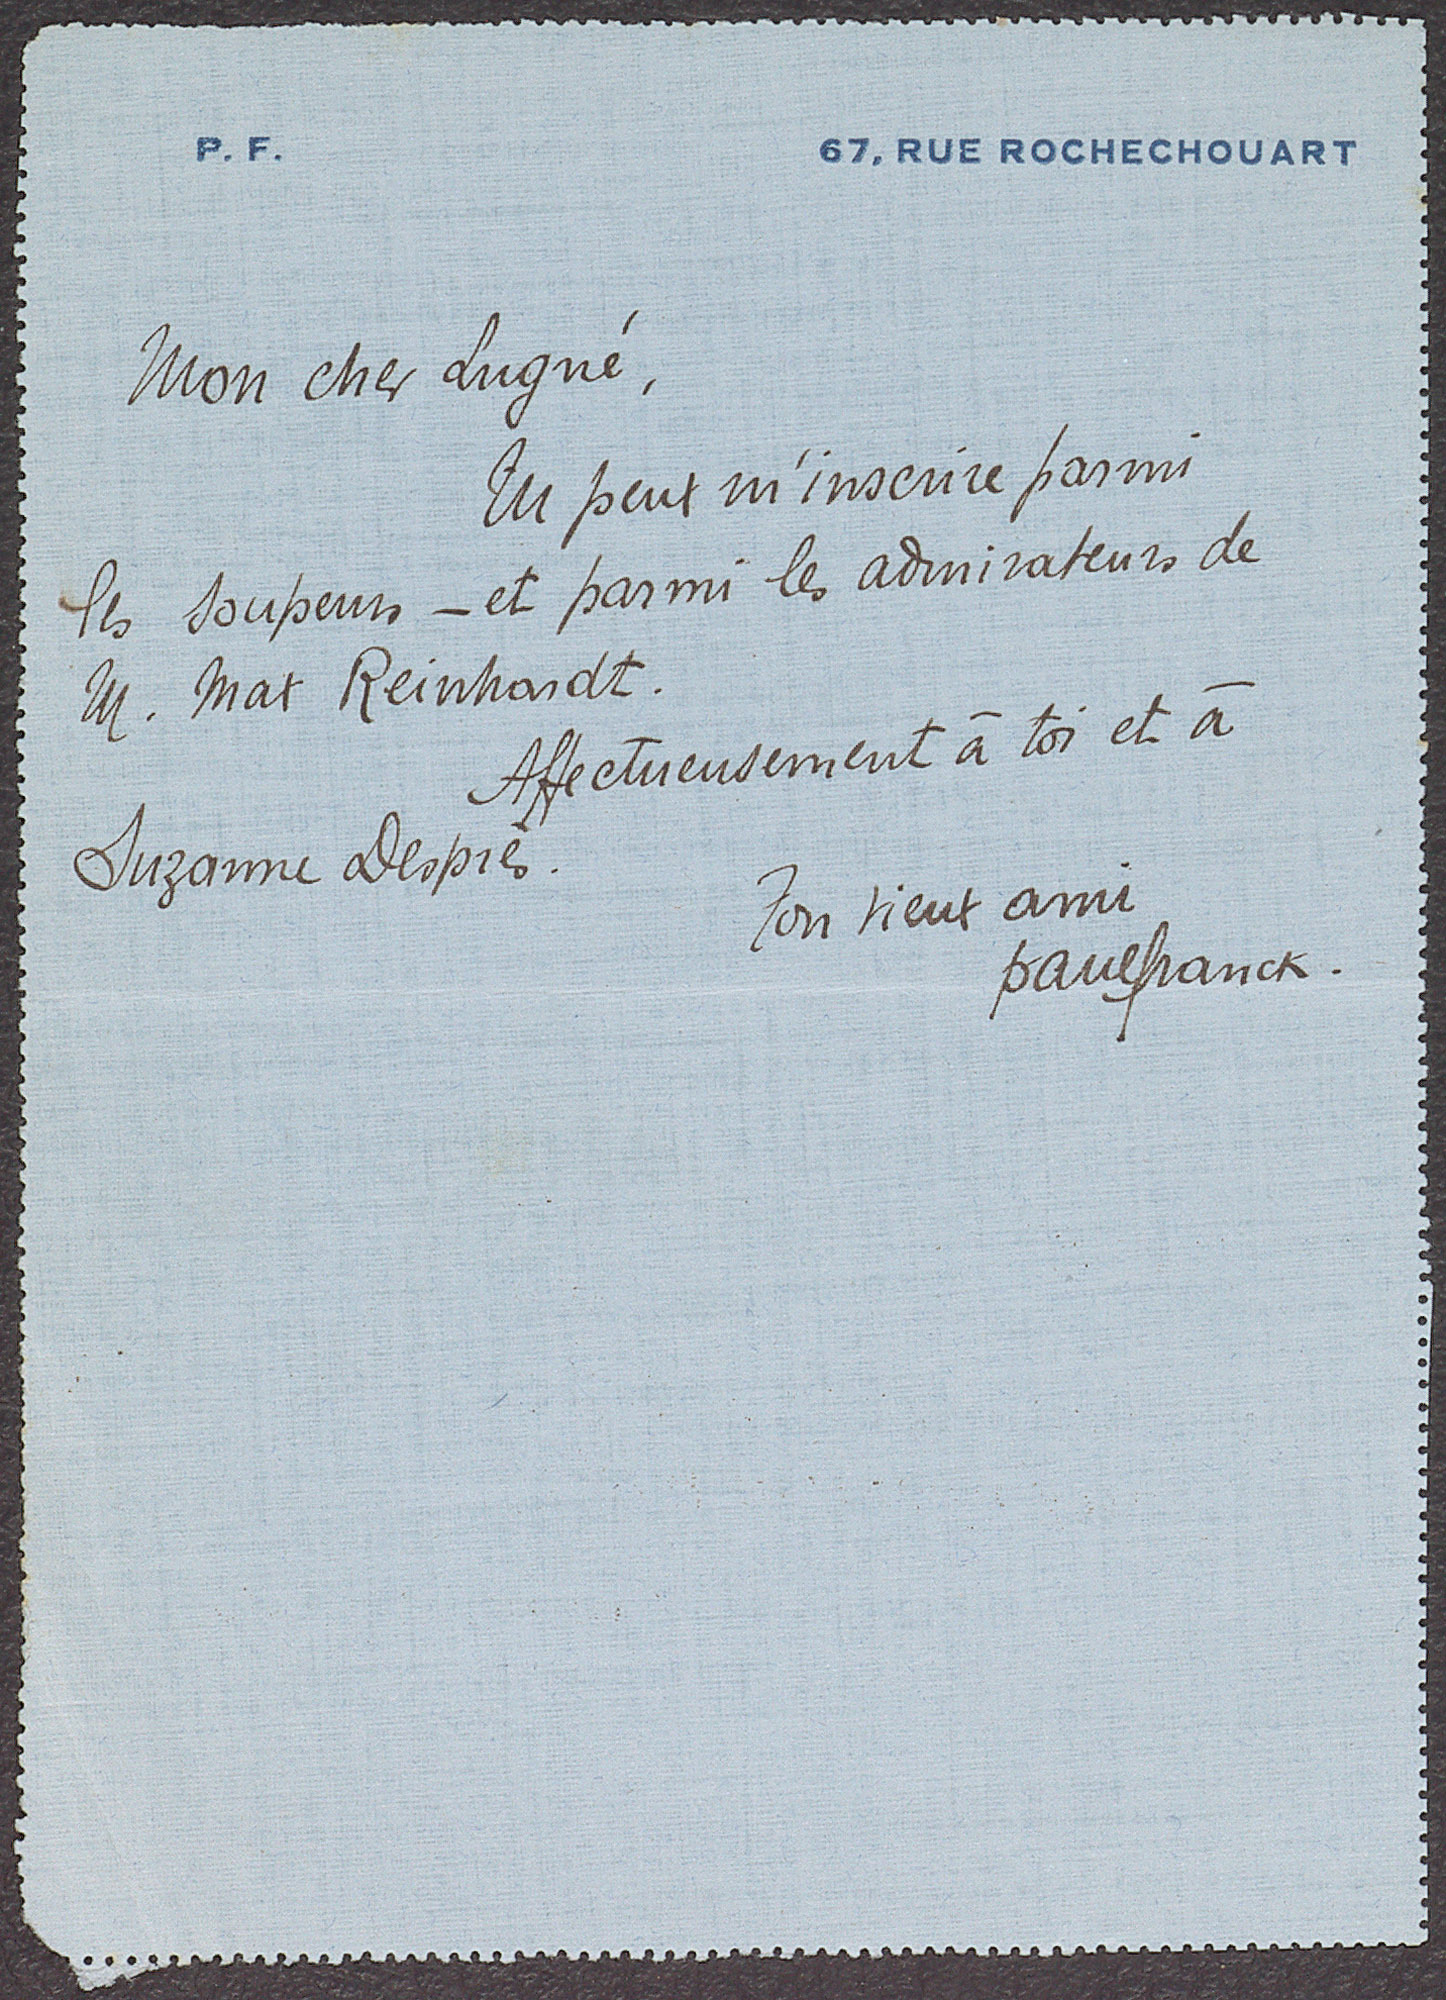 P. F.
67, RUE ROCHECHOUART
Mon cher Lugné,
Tu peux m'inscrire parmi
les soupeurs – et parmi les admirateurs de
M. Max Reinhardt.
Affectueusement à toi et à
Suzanne Desprès.
Ton vieux ami
paulfranck.